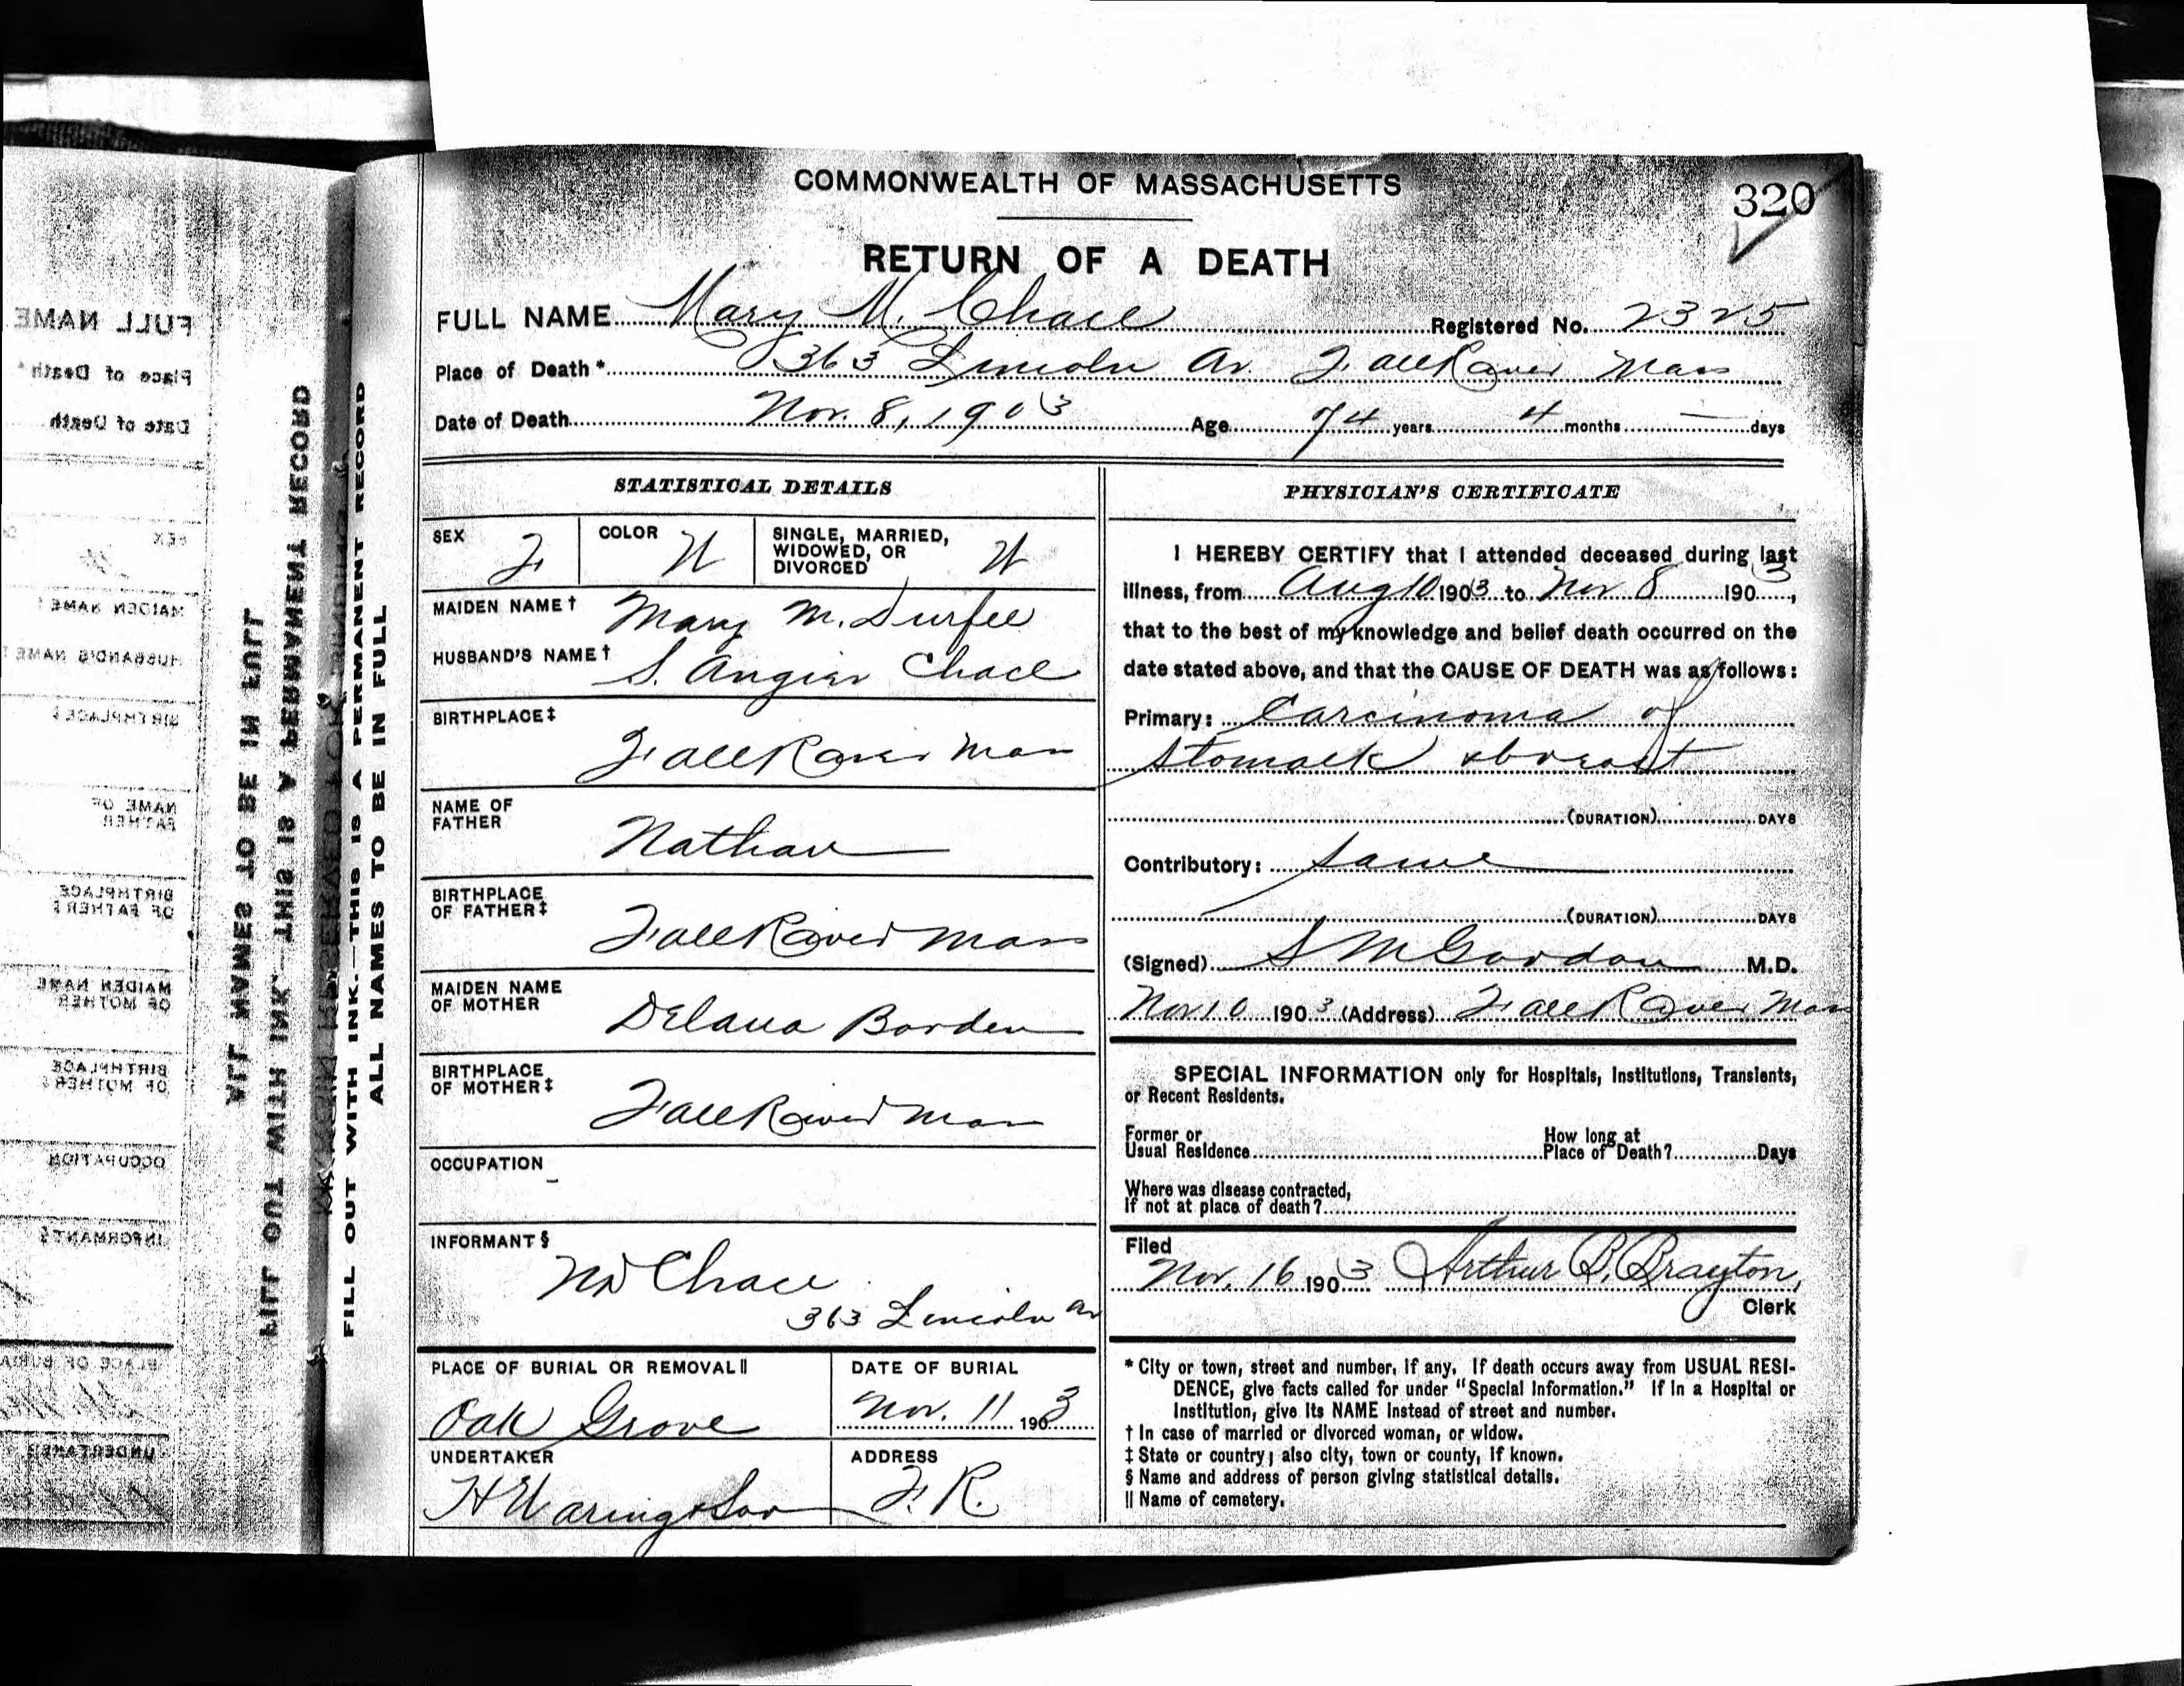 COMMONWEALTH OF MASSACHUSETTS
320
RETURN OF A DEATH
FULL NAME Mary M. Chace Registered No. 2325
Place of Death* 363 Lincoln Av. Fall River Mass
Date of Death Nov. 8, 1903 Age 74 years 4 months — days
STATISTICAL DETAILS
SEX F COLOR W SINGLE, MARRIED, WIDOWED, OR DIVORCED W
MAIDEN NAME† Mary M. Durfee
HUSBAND'S NAME† S. Angier Chace
BIRTHPLACE‡
Fall River Mass
NAME OF FATHER
Nathan
BIRTHPLACE OF FATHER‡
Fall River Mass
MAIDEN NAME OF MOTHER
Delana Borden
BIRTHPLACE OF MOTHER‡
Fall River Mass
OCCUPATION –
INFORMANT§
Chace
363 Lincoln Av
PLACE OF BURIAL OR REMOVAL‖ DATE OF BURIAL
Oak Grove Nov. 11 1903
UNDERTAKER ADDRESS
H Waring & Son F. R.
PHYSICIAN'S CERTIFICATE
I HEREBY CERTIFY that I attended deceased during last
illness, from Aug 10 1903 to Nov 8 1903,
that to the best of my knowledge and belief death occurred on the
date stated above, and that the CAUSE OF DEATH was as follows:
Primary: Carcinoma of
stomach & breast
(DURATION) DAYS
Contributory: same
(DURATION) DAYS
(Signed) S M Gordon M.D.
Nov 10 1903 (Address) Fall River Mass
SPECIAL INFORMATION only for Hospitals, Institutions, Transients,
or Recent Residents.
Former or Usual Residence How long at Place of Death? Days
Where was disease contracted,
If not at place of death?
Filed
Nov. 16 1903 Arthur B. Brayton,
Clerk
* City or town, street and number, if any. If death occurs away from USUAL RESI-
DENCE, give facts called for under "Special Information." If in a Hospital or
Institution, give its NAME instead of street and number.
† In case of married or divorced woman, or widow.
‡ State or country; also city, town or county, if known.
§ Name and address of person giving statistical details.
‖ Name of cemetery.
FILL OUT WITH INK.—THIS IS A PERMANENT RECORD
ALL NAMES TO BE IN FULL
FILL OUT WITH INK.—THIS IS A PERMANENT RECORD
ALL NAMES TO BE IN FULL
FULL NAME
Place of Death*
Date of Death
SEX
MAIDEN NAME†
HUSBAND'S NAME†
BIRTHPLACE‡
NAME OF FATHER
BIRTHPLACE OF FATHER‡
MAIDEN NAME OF MOTHER
BIRTHPLACE OF MOTHER‡
OCCUPATION
INFORMANT§
PLACE OF BURIAL
UNDERTAKER